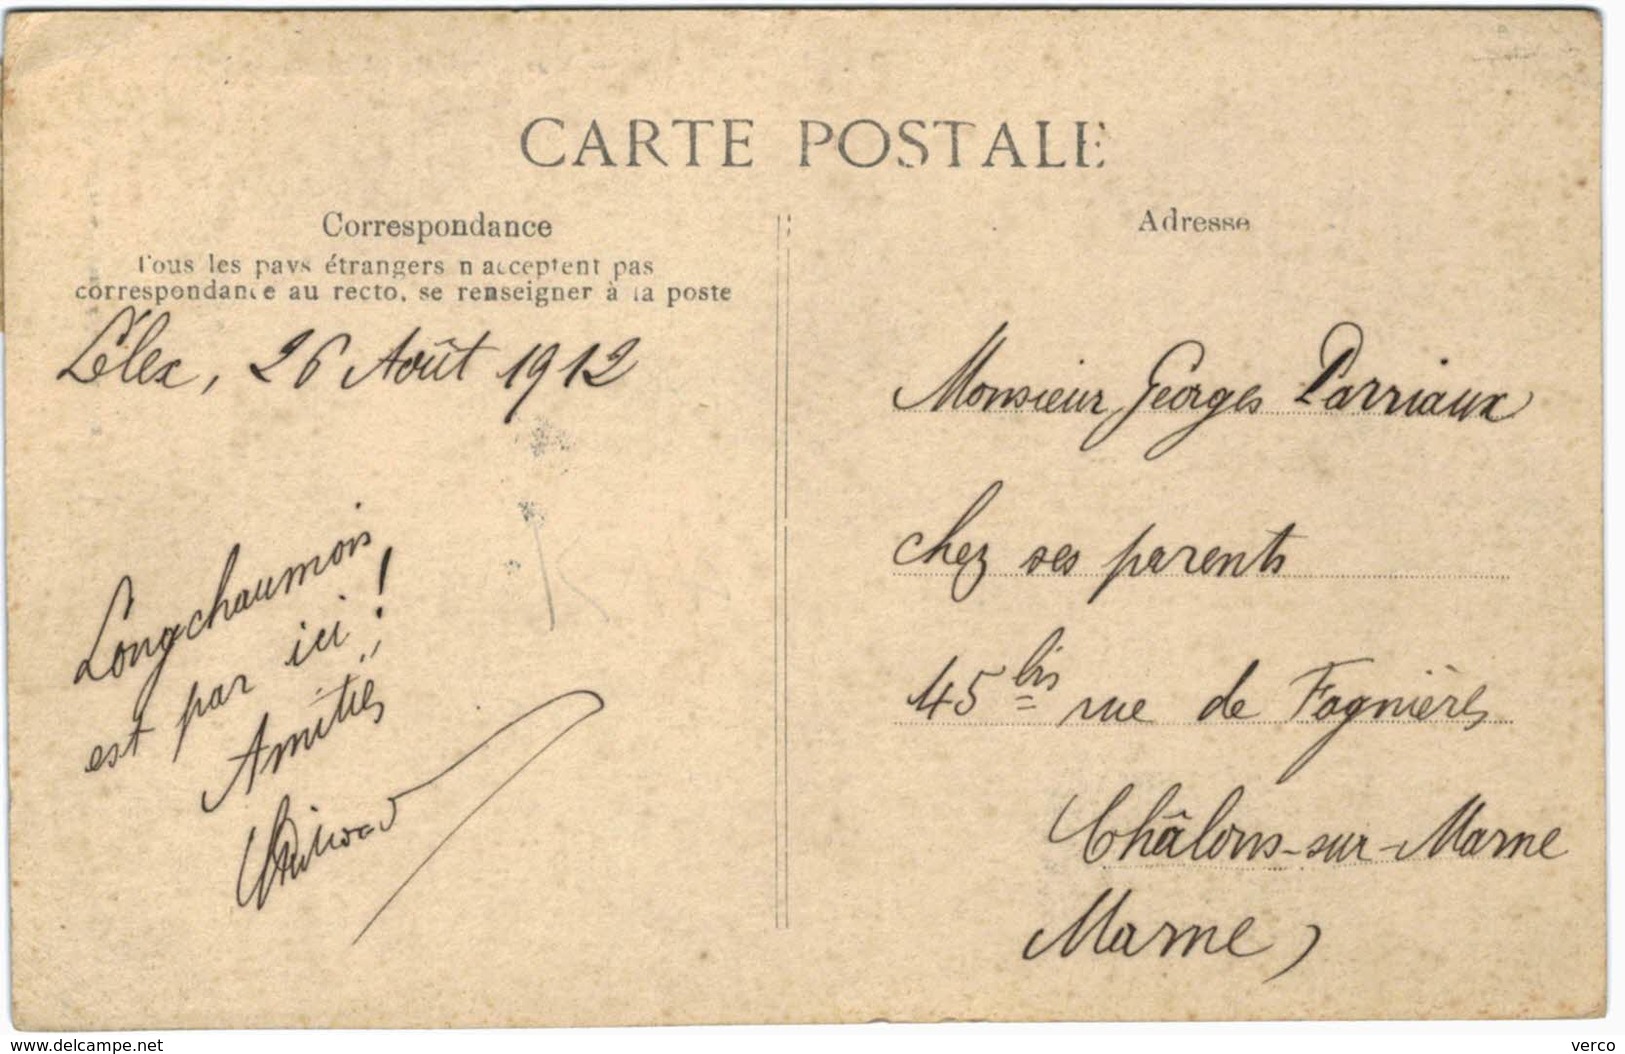 CARTE POSTALE
Correspondance
Tous les pays étrangers n'acceptent pas
correspondance au recto, se renseigner à la poste
Lélex, 26 Août 1912
Longchaumois
est par ici !
Amitiés
Adresse
Monsieur Georges Parriaux
chez ses parents
45 bis rue de Fagnières
Châlons-sur-Marne
Marne
delcampe.net
verco